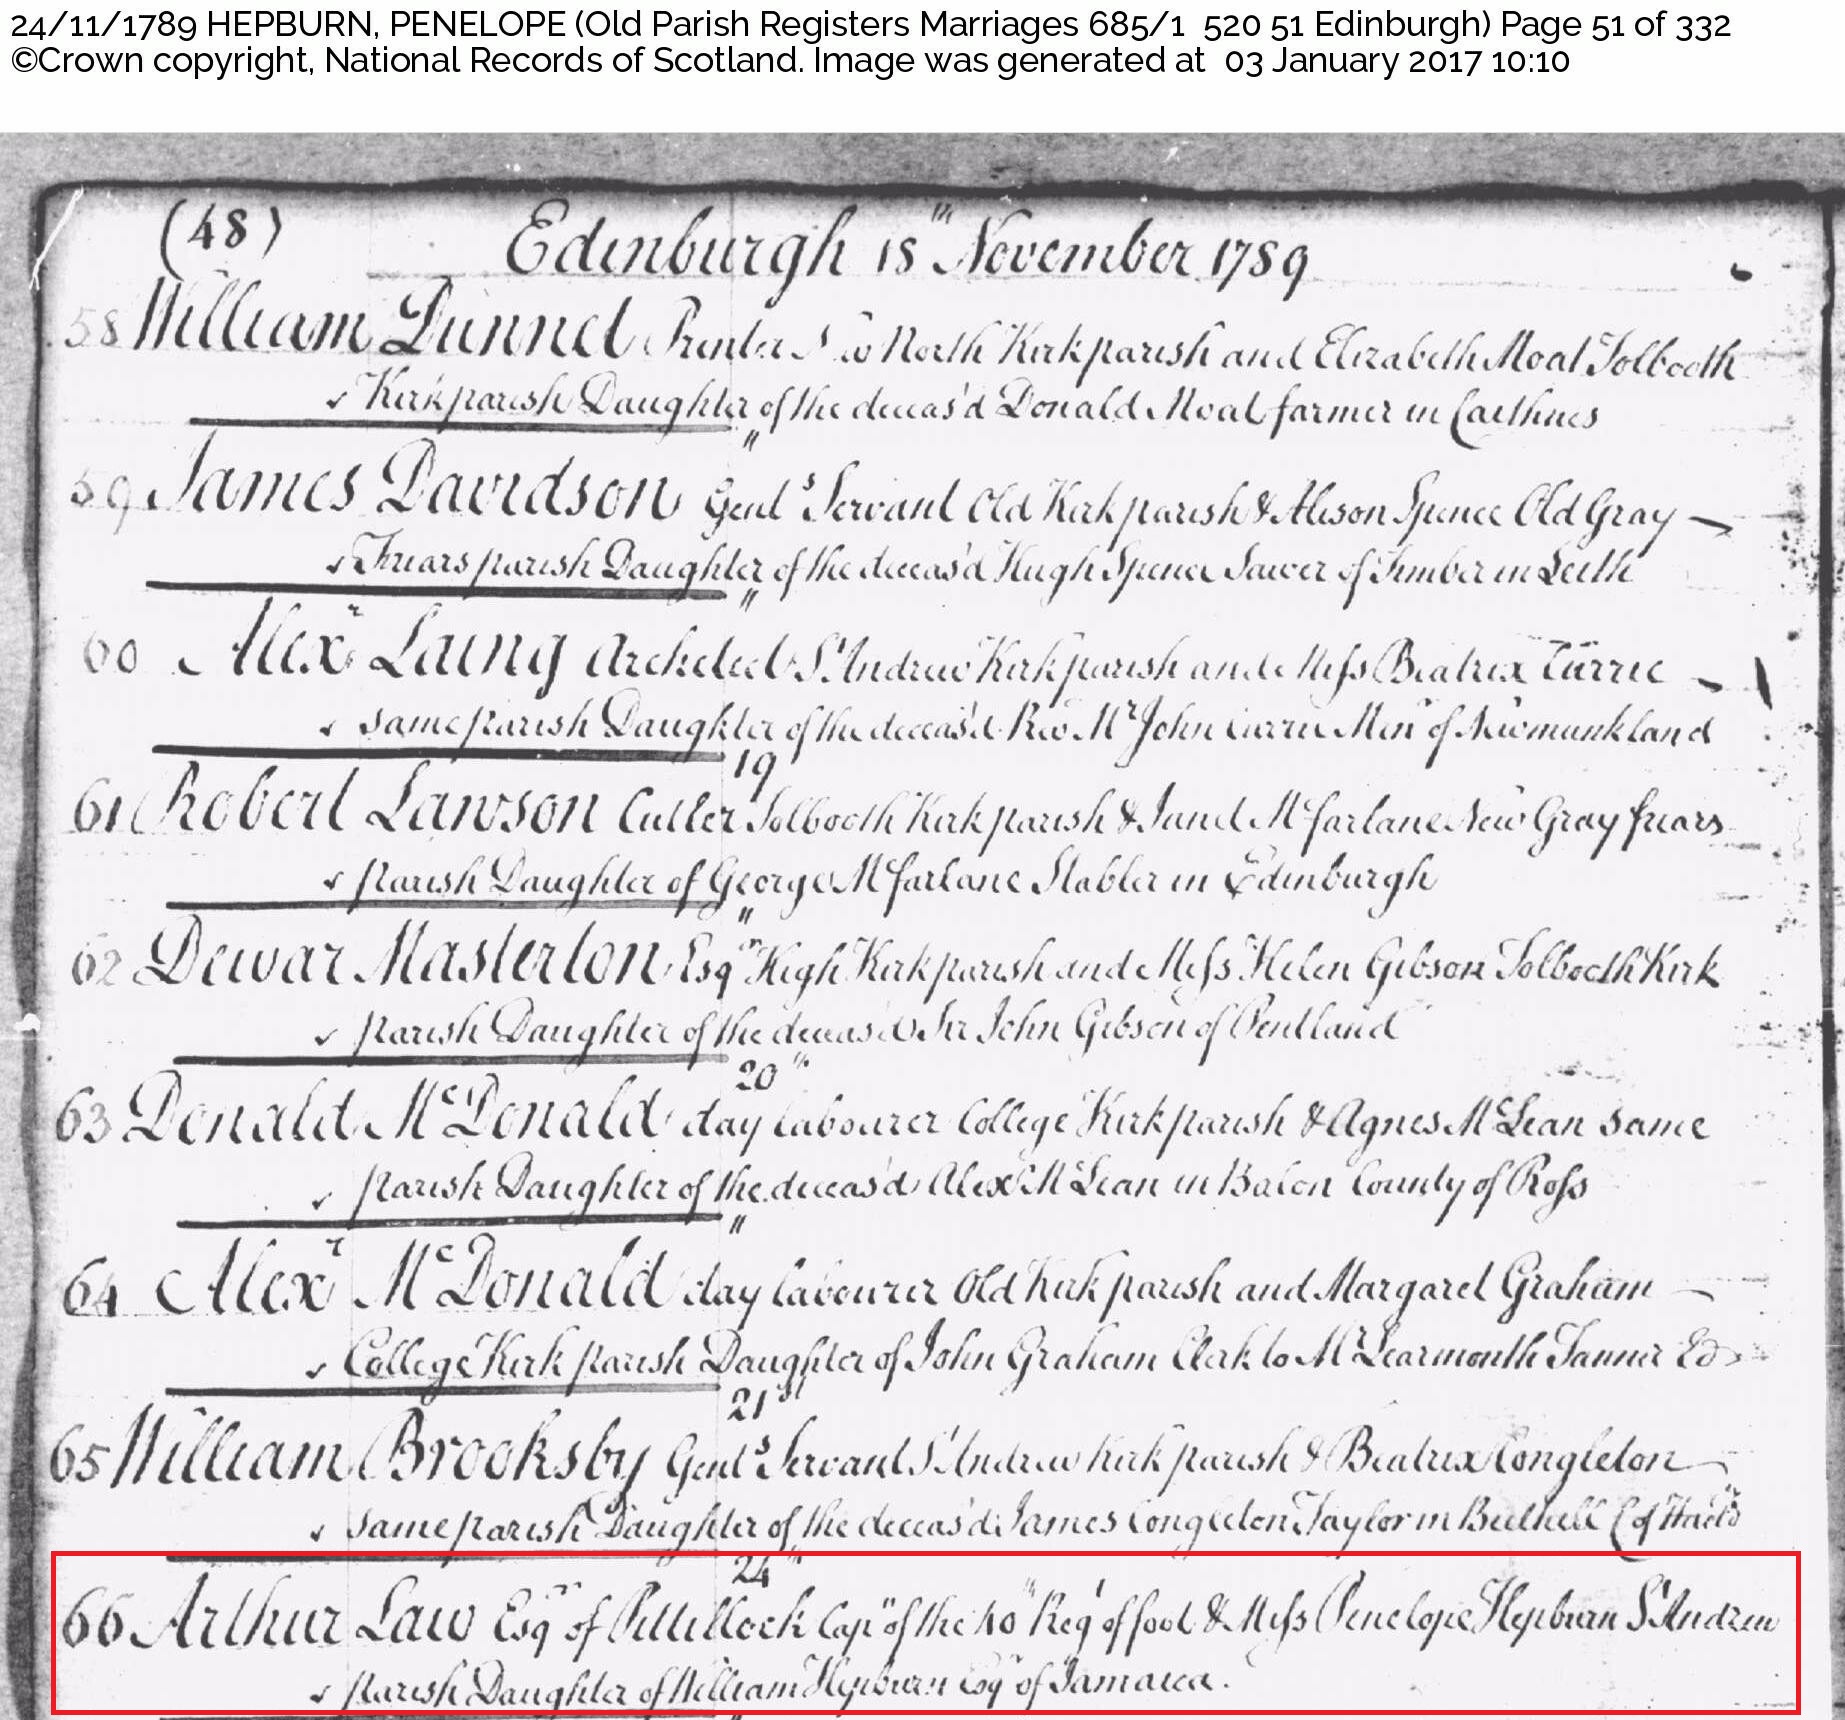 24/11/1789 HEPBURN, PENELOPE (Old Parish Registers Marriages 685/1 520 51 Edinburgh) Page 51 of 332
©Crown copyright, National Records of Scotland. Image was generated at 03 January 2017 10:10
(48) Edinburgh 18th November 1789
58 William Dunnet Printer North Kirk parish and Elizabeth Moat Tolbooth
Kirk parish Daughter of the deceas'd Donald Moat farmer in Caithnes
"
59 James Davidson Gents Servant Old Kirk parish & Alison Spence Old Gray
Friars parish Daughter of the deceas'd Hugh Spence Sawer of Timber in Leith
"
60 Alexr Laing Architect St Andrew Kirk parish and Miss Beatrix Currie
same parish Daughter of the deceas'd Rev Mr John Currie Minr of Newmunkland
19
61 Robert Lawson Cutler Tolbooth Kirk parish & Janet McFarlane New Gray friars
parish Daughter of George McFarlane Stabler in Edinburgh
"
62 Dewar Masterton Esqr High Kirk parish and Miss Helen Gibson Tolbooth Kirk
parish Daughter of the deceas'd Sir John Gibson of Pentland
20th
63 Donald McDonald day labourer College Kirk parish & Agnes McLean same
parish Daughter of the deceas'd Alexr McLean in County of Ross
"
64 Alexr McDonald day labourer Old Kirk parish and Margaret Graham
College Kirk parish Daughter of John Graham Clerk to Mr Learmonth Tanner Edr
21st
65 William Brooksby Gents Servant St Andrew Kirk parish & Beatrix Congleton
same parish Daughter of the deceas'd James Congleton Taylor in
24th
66 Arthur Law Esqr of Pittillock Capn of the 40th Regt of foot & Miss Penelope Hepburn St Andrew
parish Daughter of William Hepburn Esqr of Jamaica.